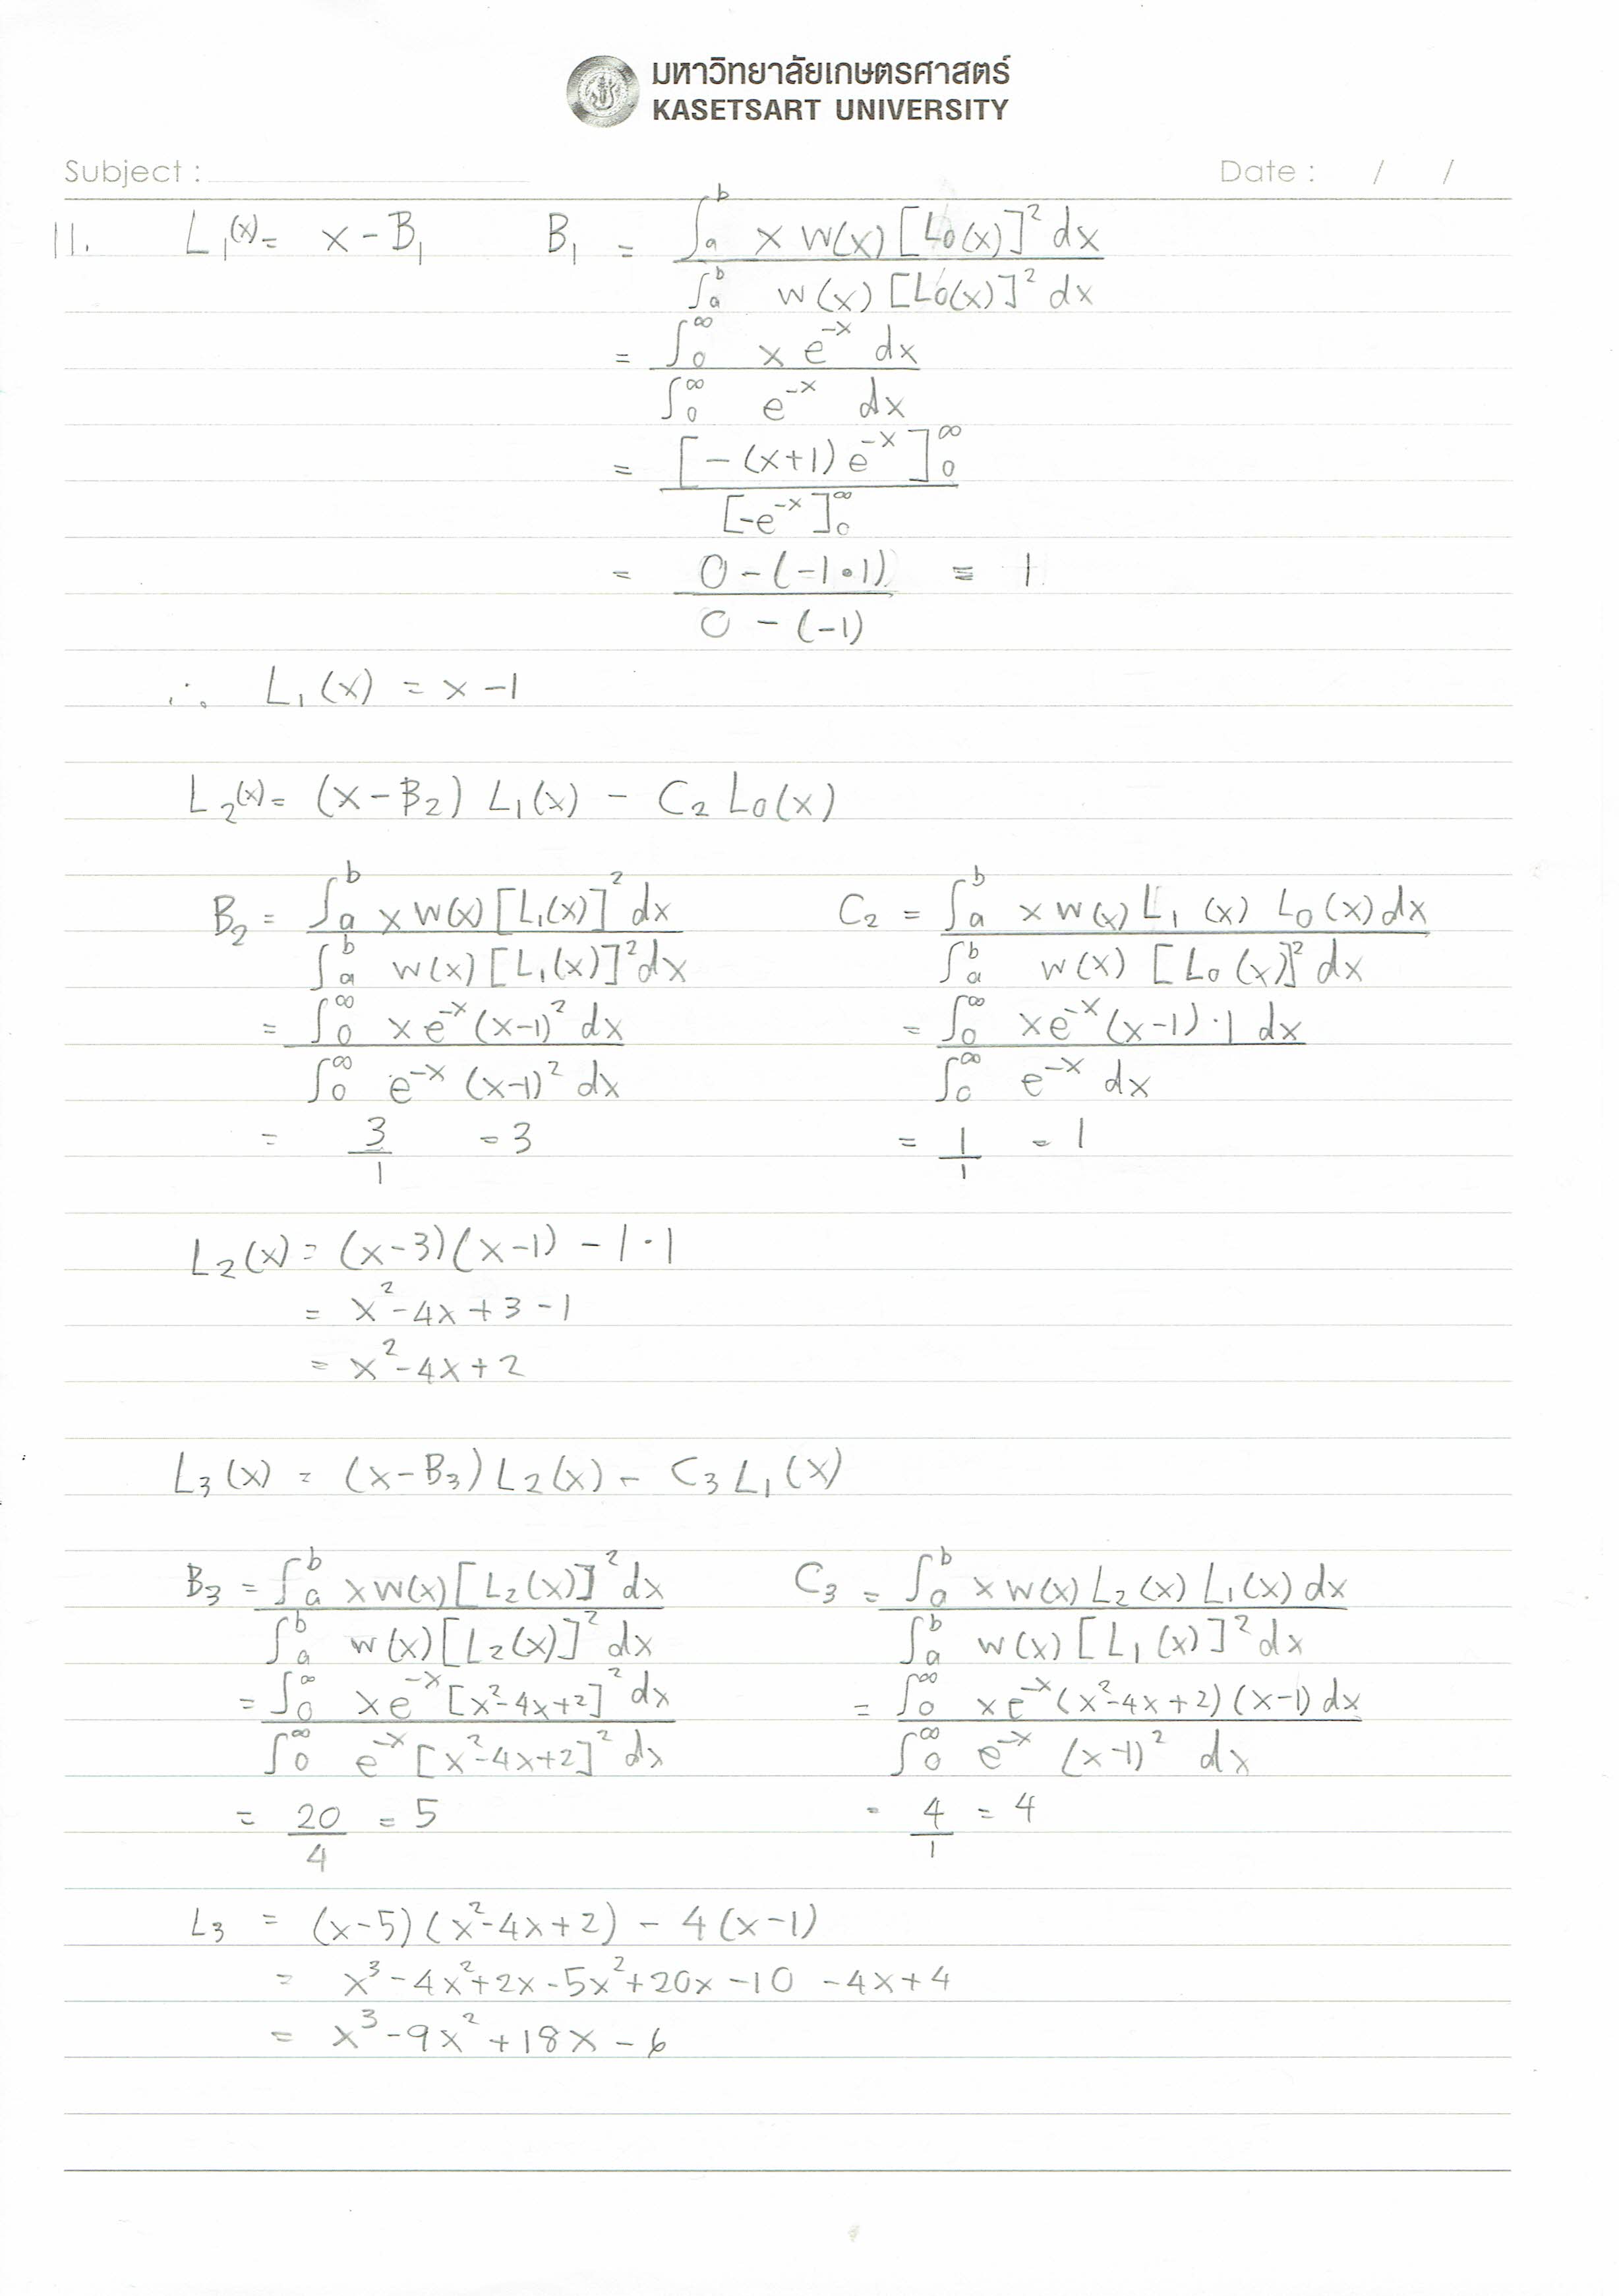 มหาวิทยาลัยเกษตรศาสตร์
KASETSART UNIVERSITY
Subject : Date : / /
11. L₁(x) = x - B₁ B₁ = ∫ₐᵇ x w(x) [L₀(x)]² dx
∫ₐᵇ w(x) [L₀(x)]² dx
= ∫₀^∞ x e^-x dx
∫₀^∞ e^-x dx
= [-(x+1) e^-x]₀^∞
[-e^-x]₀^∞
= 0 - (-1•1) = 1
0 - (-1)
∴ L₁(x) = x - 1
L₂(x) = (x - B₂) L₁(x) - C₂ L₀(x)
B₂ = ∫ₐᵇ x w(x) [L₁(x)]² dx C₂ = ∫ₐᵇ x w(x) L₁(x) L₀(x) dx
∫ₐᵇ w(x) [L₁(x)]² dx ∫ₐᵇ w(x) [L₀(x)]² dx
= ∫₀^∞ x e^-x (x-1)² dx = ∫₀^∞ x e^-x (x-1)·1 dx
∫₀^∞ e^-x (x-1)² dx ∫₀^∞ e^-x dx
= 3 = 3 = 1 = 1
1 1
L₂(x) = (x-3)(x-1) - 1·1
= x² - 4x + 3 - 1
= x² - 4x + 2
L₃(x) = (x - B₃) L₂(x) - C₃ L₁(x)
B₃ = ∫ₐᵇ x w(x) [L₂(x)]² dx C₃ = ∫ₐᵇ x w(x) L₂(x) L₁(x) dx
∫ₐᵇ w(x) [L₂(x)]² dx ∫ₐᵇ w(x) [L₁(x)]² dx
= ∫₀^∞ x e^-x [x²-4x+2]² dx = ∫₀^∞ x e^-x (x²-4x+2)(x-1) dx
∫₀^∞ e^-x [x²-4x+2]² dx ∫₀^∞ e^-x (x-1)² dx
= 20 = 5 = 4 = 4
4 1
L₃ = (x-5)(x²-4x+2) - 4(x-1)
= x³ - 4x² + 2x - 5x² + 20x - 10 - 4x + 4
= x³ - 9x² + 18x - 6